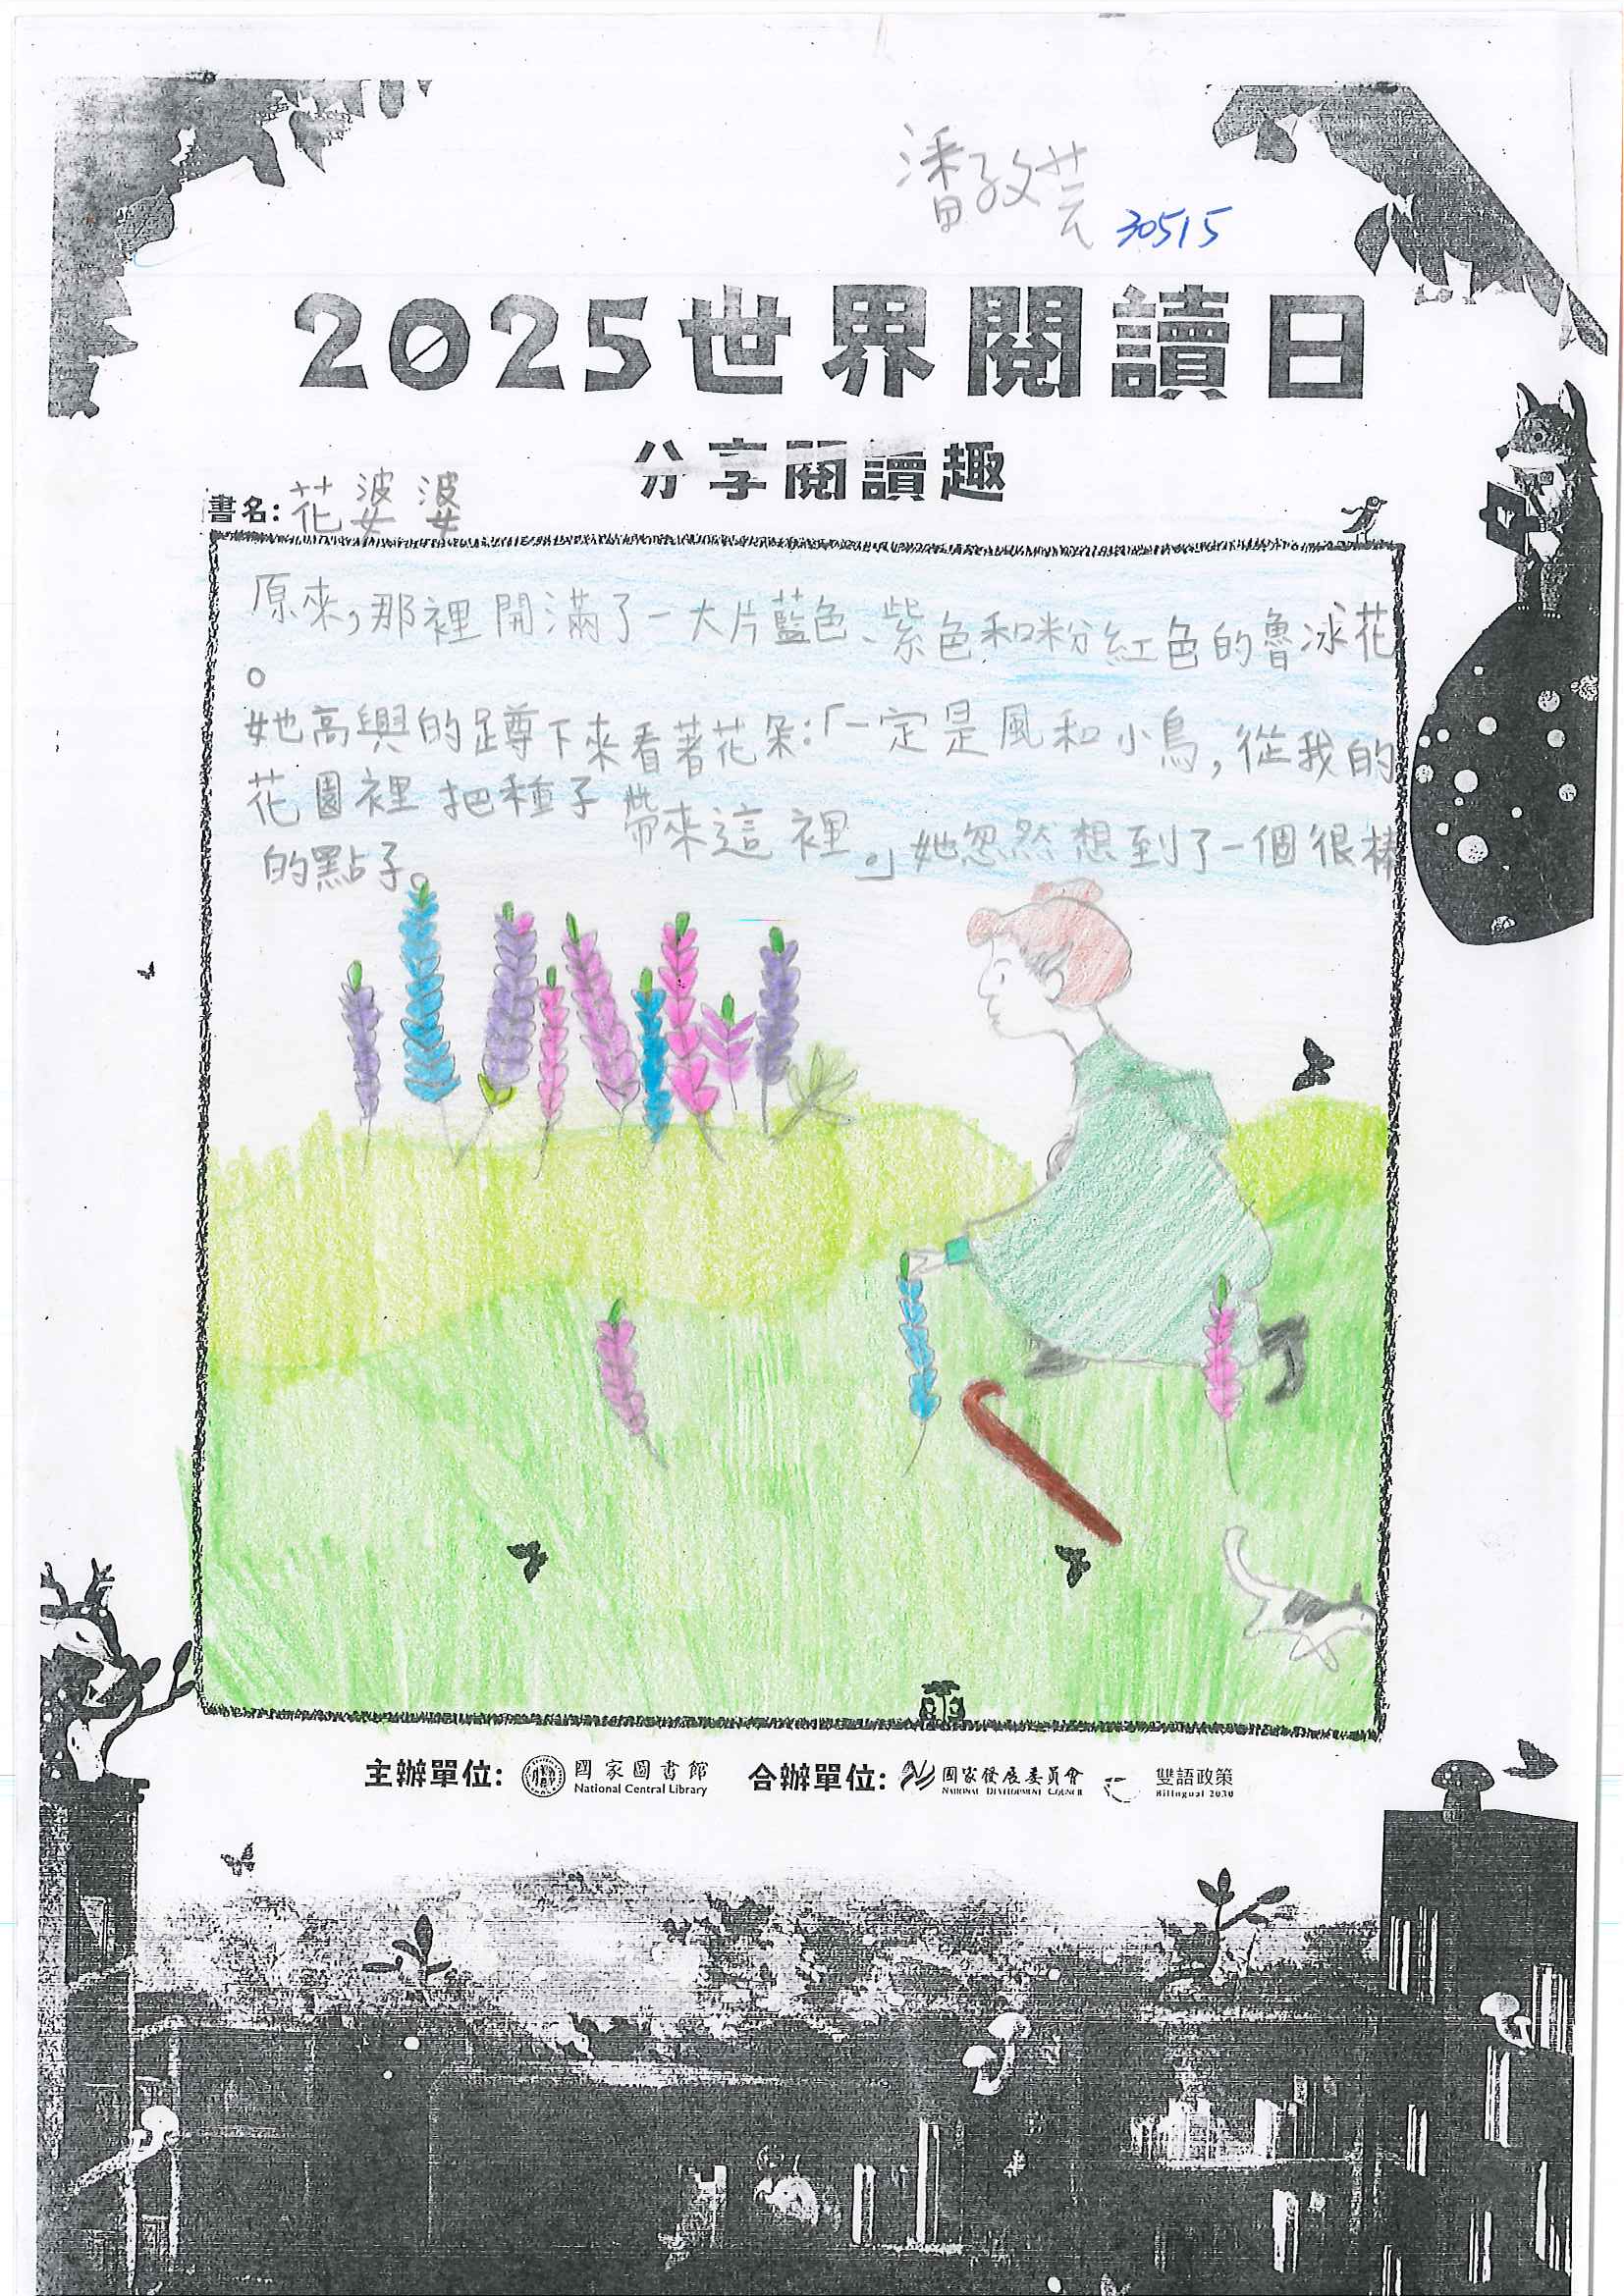 潘孜芸 30515
2025世界閱讀日
分享閱讀趣
書名: 花婆婆
原來,那裡開滿了一大片藍色、紫色和粉紅色的魯冰花
。
她高興的蹲下來看著花朵:「一定是風和小鳥,從我的
花園裡把種子帶來這裡。」她忽然想到了一個很棒
的點子。
主辦單位: 國家圖書館 National Central Library 合辦單位: 國家發展委員會 NATIONAL DEVELOPMENT COUNCIL 雙語政策 Bilingual 2030